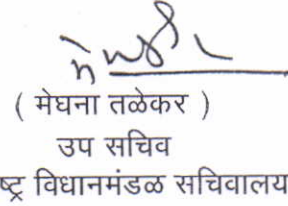 ( मेघना तळेकर )
उप सचिव
ष्ट्र विधानमंडळ सचिवालय